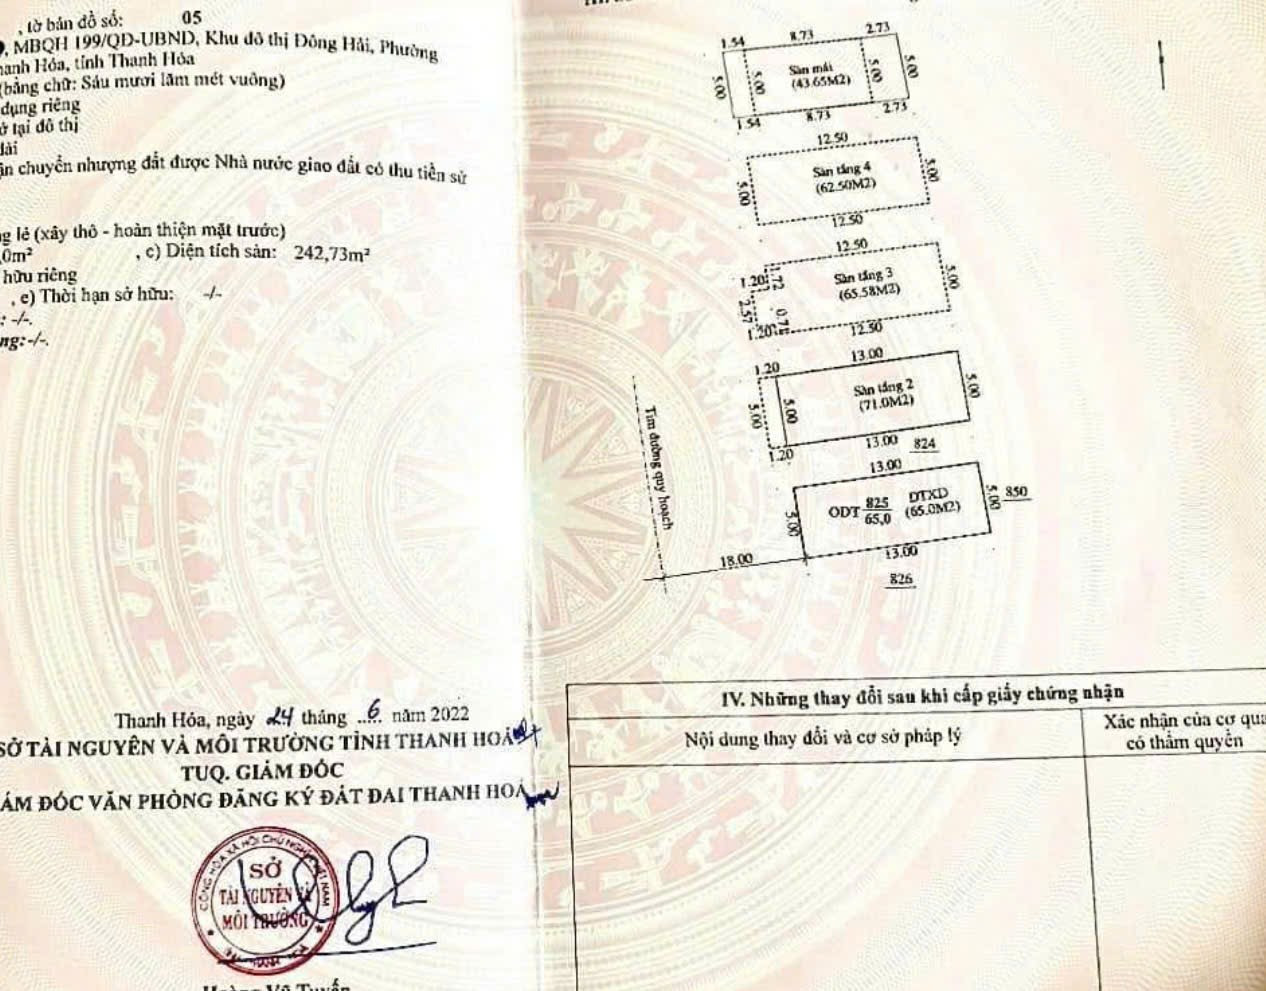 , tờ bản đồ số: 05
, MBQH 199/QĐ-UBND, Khu đô thị Đông Hải, Phường
hanh Hóa, tỉnh Thanh Hóa
(bằng chữ: Sáu mươi lăm mét vuông)
dụng riêng
ở tại đô thị
dài
ận chuyển nhượng đất được Nhà nước giao đất có thu tiền sử
g lẻ (xây thô - hoàn thiện mặt trước)
,0m² , c) Diện tích sàn: 242,73m²
hữu riêng
, e) Thời hạn sở hữu: -/-
: -/-.
ng:-/-.
Thanh Hóa, ngày 24 tháng 6 năm 2022
SỞ TÀI NGUYÊN VÀ MÔI TRƯỜNG TỈNH THANH HOÁ
TUQ. GIÁM ĐỐC
ÁM ĐỐC VĂN PHÒNG ĐĂNG KÝ ĐẤT ĐAI THANH HOÁ
CỘNG HÒA XÃ HỘI CHỦ NGHĨA VIỆT NAM
SỞ
TÀI NGUYÊN VÀ
MÔI TRƯỜNG
Hoàng Vũ Tuyến
1.54 8.73 2.73
5.00 5.00 Sàn mái 5.00 5.00
(43.65M2)
1.54 8.73 2.73
12.50
5.00 Sàn tầng 4 5.00
(62.50M2)
12.50
12.50
1.20 1.72 Sàn tầng 3 5.00
2.57 0.71 (65.58M2)
1.20 12.50
1.20 13.00
5.00 5.00 Sàn tầng 2 5.00
(71.0M2)
1.20 13.00 824
13.00
5.00 ODT 825 ĐTXD 5.00 850
65,0 (65.0M2)
18.00 13.00
826
Tim đường quy hoạch
IV. Những thay đổi sau khi cấp giấy chứng nhận
Nội dung thay đổi và cơ sở pháp lý
Xác nhận của cơ qua
có thẩm quyền